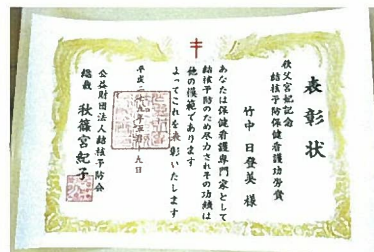 表彰状
秩父宮妃記念
結核予防保健看護功労賞
竹中 日登美 様
あなたは保健看護専門家として
結核予防のため尽力されその功績は
他の模範であります
よってこれを表彰いたします
平成二 年 日
公益財団法人結核予防会
総裁 秋篠宮紀子